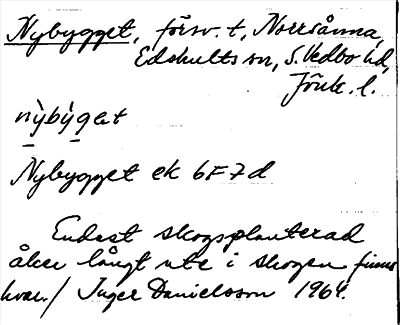 Nybygget, försv. t, Norrsånna,
Edshults sn, S. Vedbo hd,
Jönk. l.
nỳbẏget
Nybygget ek 6F7d
Endast skogsplanterad
åker långt ute i skogen finns
kvar. / Inger Danielsson 1964.